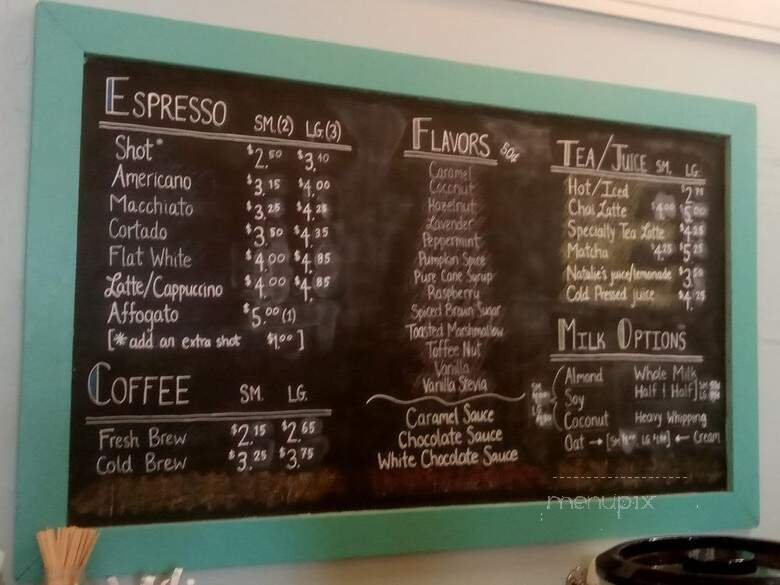 ESPRESSO SM.(2) LG.(3)
Shot* $2.50 $3.40
Americano $3.15 $4.00
Macchiato $3.25 $4.25
Cortado $3.50 $4.35
Flat White $4.00 $4.85
Latte/Cappuccino $4.00 $4.85
Affogato $5.00(1)
[*add an extra shot $1.00]
COFFEE SM. LG.
Fresh Brew $2.15 $2.65
Cold Brew $3.25 $3.75
FLAVORS 50¢
Caramel
Coconut
Hazelnut
Lavender
Peppermint
Pumpkin Spice
Pure Cane Syrup
Raspberry
Spiced Brown Sugar
Toasted Marshmallow
Toffee Nut
Vanilla
Vanilla Stevia
Caramel Sauce
Chocolate Sauce
White Chocolate Sauce
TEA/JUICE SM. LG.
Hot/Iced
Chai Latte $4.00 $5.00
Specialty Tea Latte $4.25
Matcha $4.25 $5.25
Natalie's juice/lemonade $3.50
Cold Pressed juice $4.25
MILK OPTIONS
Almond Whole Milk
Soy Half & Half]
Coconut Heavy Whipping
Oat → ← Cream
menupix